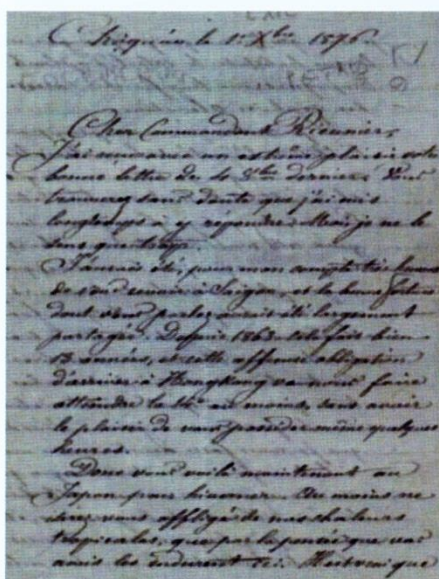 le 1er Xbre 1876
Cher Commandant Rieunier,
J'ai reçu avec un extrême plaisir votre
bonne lettre de le 8bre dernier. Vous
trouverez sans doute que j'ai mis
longtemps à y répondre. Mais je ne le
sens que trop.
J'aurais été, pour mon compte très heureux
de vous revoir à Saigon, et la bonne fortune
dont vous parlez aurait été largement
partagée. Depuis 1863 cela fait bien
13 années, et cette affreuse obligation
d'arriver à Hong Kong va nous faire
attendre au moins, sans avoir
le plaisir de vous posséder même quelques
heures.
Donc vous voilà maintenant au
Japon pour hiverner. Au moins ne
serez vous affligé de nos chaleurs
tropicales, que par la pensée que vos
amis les endurent ici. Il est vrai que